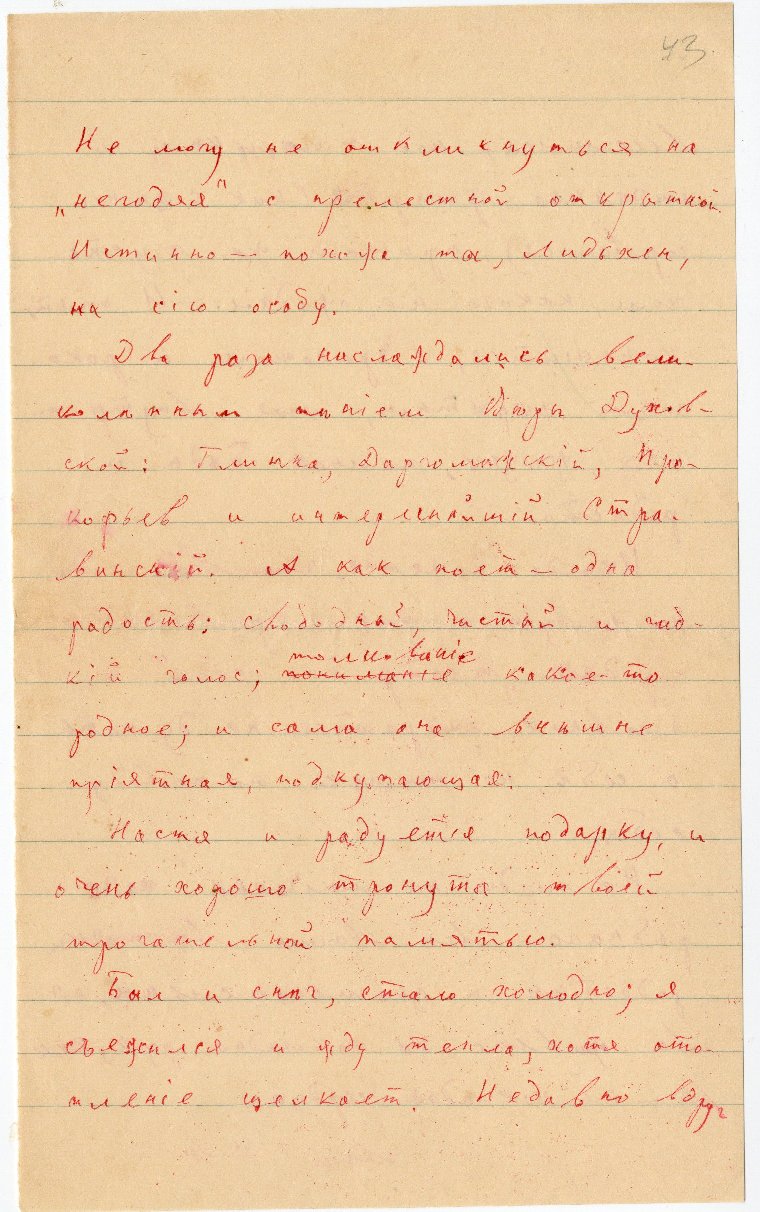 43
Не могу не откликнуться на
„негодяя" с прелестной открыткой.
Истинно — похожа ты, Лидьхен,
на сію особу.
Два раза наслаждались вели-
колѣпным пѣніем Вѣры Духов-
ской: Глинка, Даргомыжскій, Про-
кофьев и интереснѣйшій Стра-
винскій. А как поет — одна
радость: свободный, чистый и гиб-
кій голос; толкованіе какое-то
родное; и сама она внѣшне
пріятная, подкупающая.
Настя и радуется подарку, и
очень хорошо тронута твоей
трогательной памятью.
Был и снѣг, стало холодно; я
съежился и жду тепла, хотя ото-
пленіе щелкает. Недавно вдруг